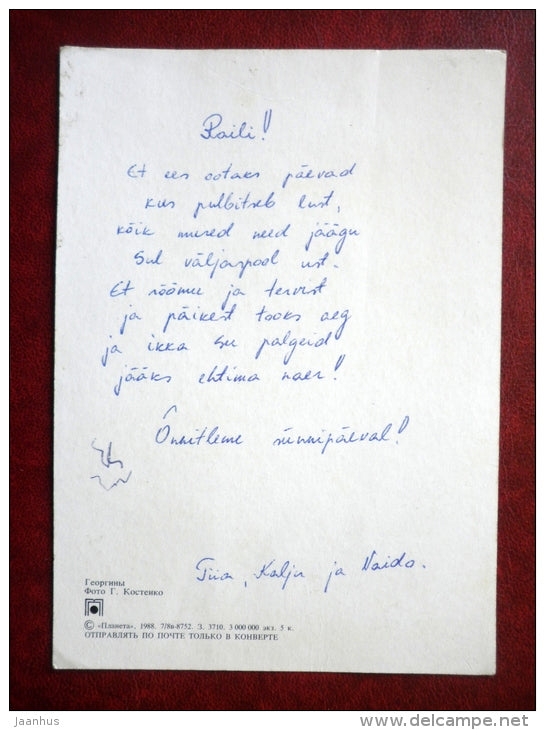 Raili!
Et ees ootaks päevad
kus pulbitseb lust,
kõik mured need jäägu
Sul väljaspool ust.
Et rõõmu ja tervist
ja päikest tooks aeg
ja ikka Su palgeid
jääks ehtima naer!
Õnnitleme sünnipäeval!
Tiia, Kalju ja Naido.
Георгины
Фото Г. Костенко
© «Планета». 1988. 7/8в-8752. З. 3710. 3 000 000 экз. 5 к.
ОТПРАВЛЯТЬ ПО ПОЧТЕ ТОЛЬКО В КОНВЕРТЕ
jaanhus
www.delcampe.net